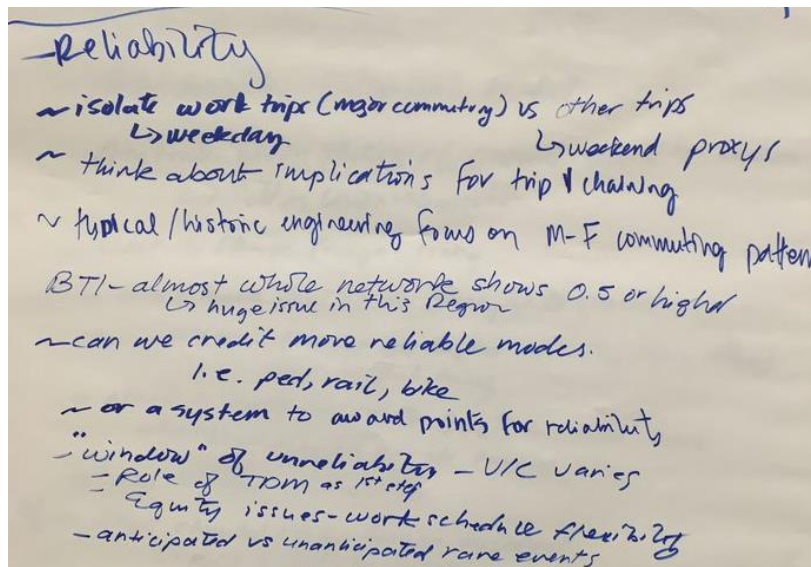 - Reliability
~ isolate work trips (major commuting) vs other trips
↳ weekday ↳ weekend proxys
~ think about implications for trip chaining
~ typical/historic engineering focus on M-F commuting pattern
BTI - almost whole network shows 0.5 or higher
↳ huge issue in this Region
~ can we credit more reliable modes.
i.e. ped, rail, bike
~ or a system to award points for reliability
- "window" of unreliability - V/C varies
- Role of TDM as 1st step
- Equity issues - work schedule flexibility
- anticipated vs unanticipated rare events